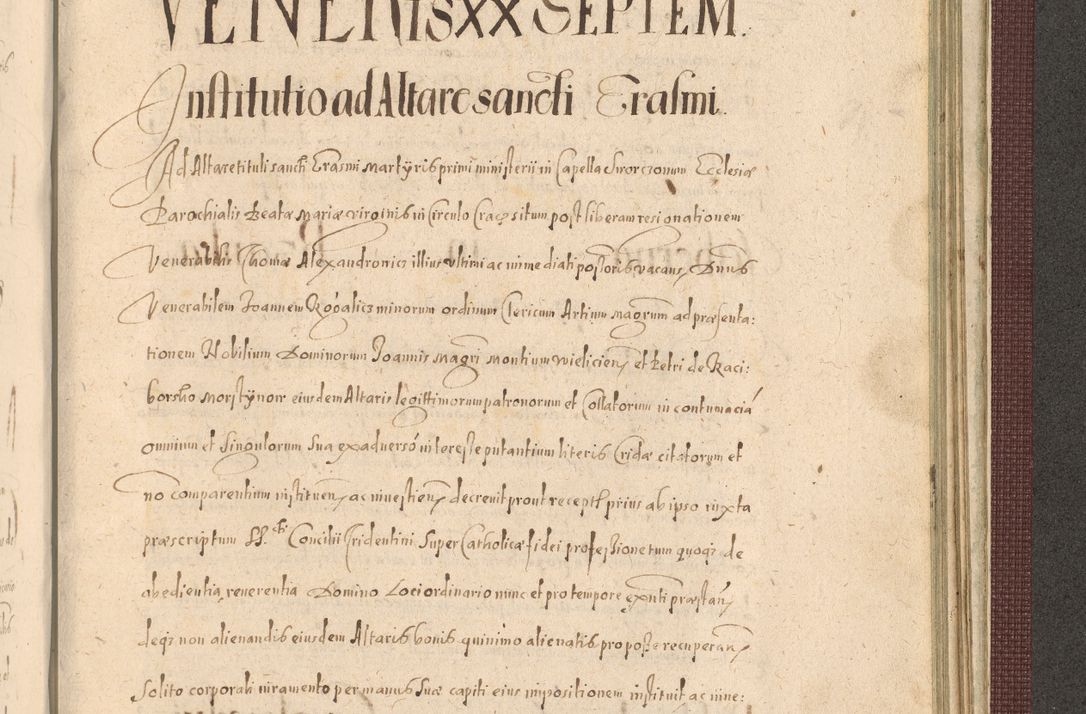 VENERIS XX SEPTEM.
Institutio ad Altare sancti Erasmi.
Ad Altare tituli sancti Erasmi Martyris primi ministerii in Capella Ecclesiæ
Parochialis Beatæ Mariæ virginis in Circulo Crac: situm post liberam resignationem
Venerabilis Thomæ Alexandrowicz illius ultimi ac immediati posoris vacans, Dnus
Venerabilem Joannem Rogalicz minorum ordinum Clericum Artium magrum ad præsenta:
tionem Nobilium Dominorum Joannis Magri Montium wielicien et Petri de Raci:
borsko Morstynow eiusdem Altaris legittimorum patronorum et Collatorum in contumaciā
omnium et singulorum sua ex adverso interesse putantium literis Cridæ citatorum et
no comparentium instituen ac investien decrevit prout recept prius ab ipso iuxta
præscriptum SS.cti Concilii Tridentini super Catholicæ fidei professione tum quoq; de
abedientia reverentia Domino Loci ordinario nunc et pro tempore exnti præstan
deq; non alienandis eiusdem Altaris bonis quinimo alienatis pro posse recuperan
solito corporali iuramento per manus suæ capiti eius impositionem instituit ac inve: